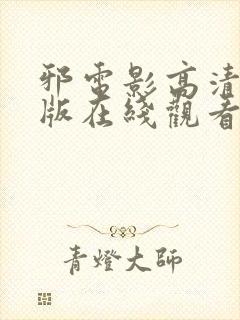 邪電影高清
版在綫觀看
青燈大師